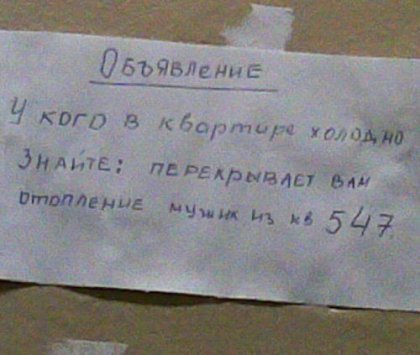 Объявление
У кого в квартире холодно
Знайте: перекрывает вам
отопление мужик из кв 547